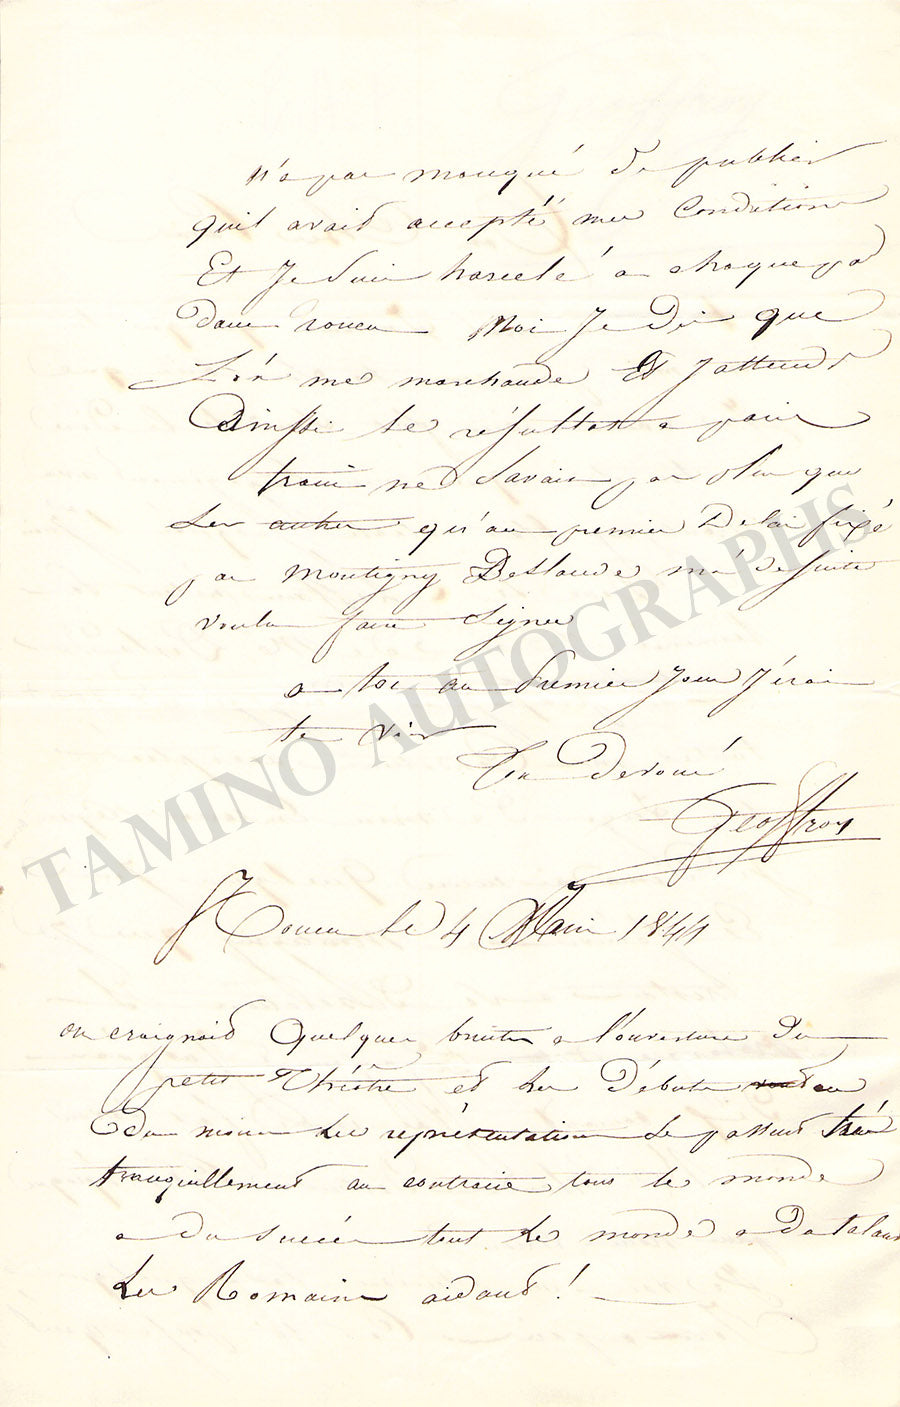 n'a pas manqué de publier
quil avait accepté mes Conditions
Et Je Suis harcelé a chaque pas
dans rouen Moi Je Dis que
L'on me marchande Et J attends
Ainssi le résultat a paris
ne Savais pas plus que
Les autres qu'au premier Delai fixé
par Montigny Deslandes m'a de suite
voulu faire Signer
a toi au Premier Jour J'irai
te voir
Ton Devoué
Geoffroy
Rouen le 4 Juin 1844
on craignait Quelques bruits a l'ouverture Du
petit Théâtre et Les Débuts ou
du moins Les représentations Se passent très
tranquillement au contraire tous le monde
a du succès tout Le monde a Du talent
Les Romains aidant !
TAMINO AUTOGRAPHS